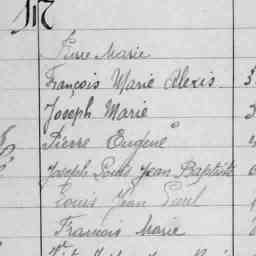 Pierre Marie
François Marie Alexis
Joseph Marie
Pierre Eugène
Joseph Louis Jean Baptiste
Louis Jean Paul
Francois Marie